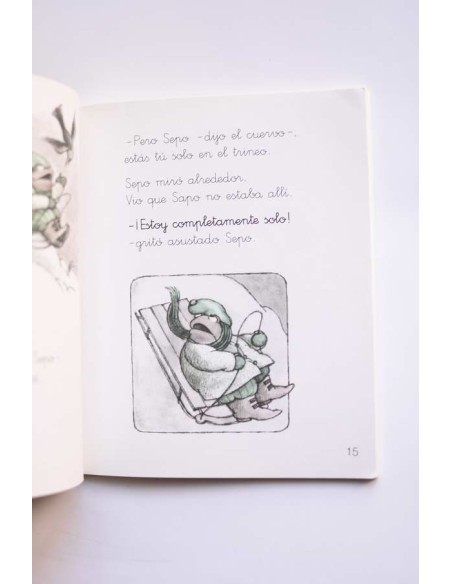 -Pero Sepo -dijo el cuervo-,
estás tú solo en el trineo.
Sepo miró alrededor.
Vio que Sapo no estaba allí.
-¡Estoy completamente solo!
-gritó asustado Sepo.
15